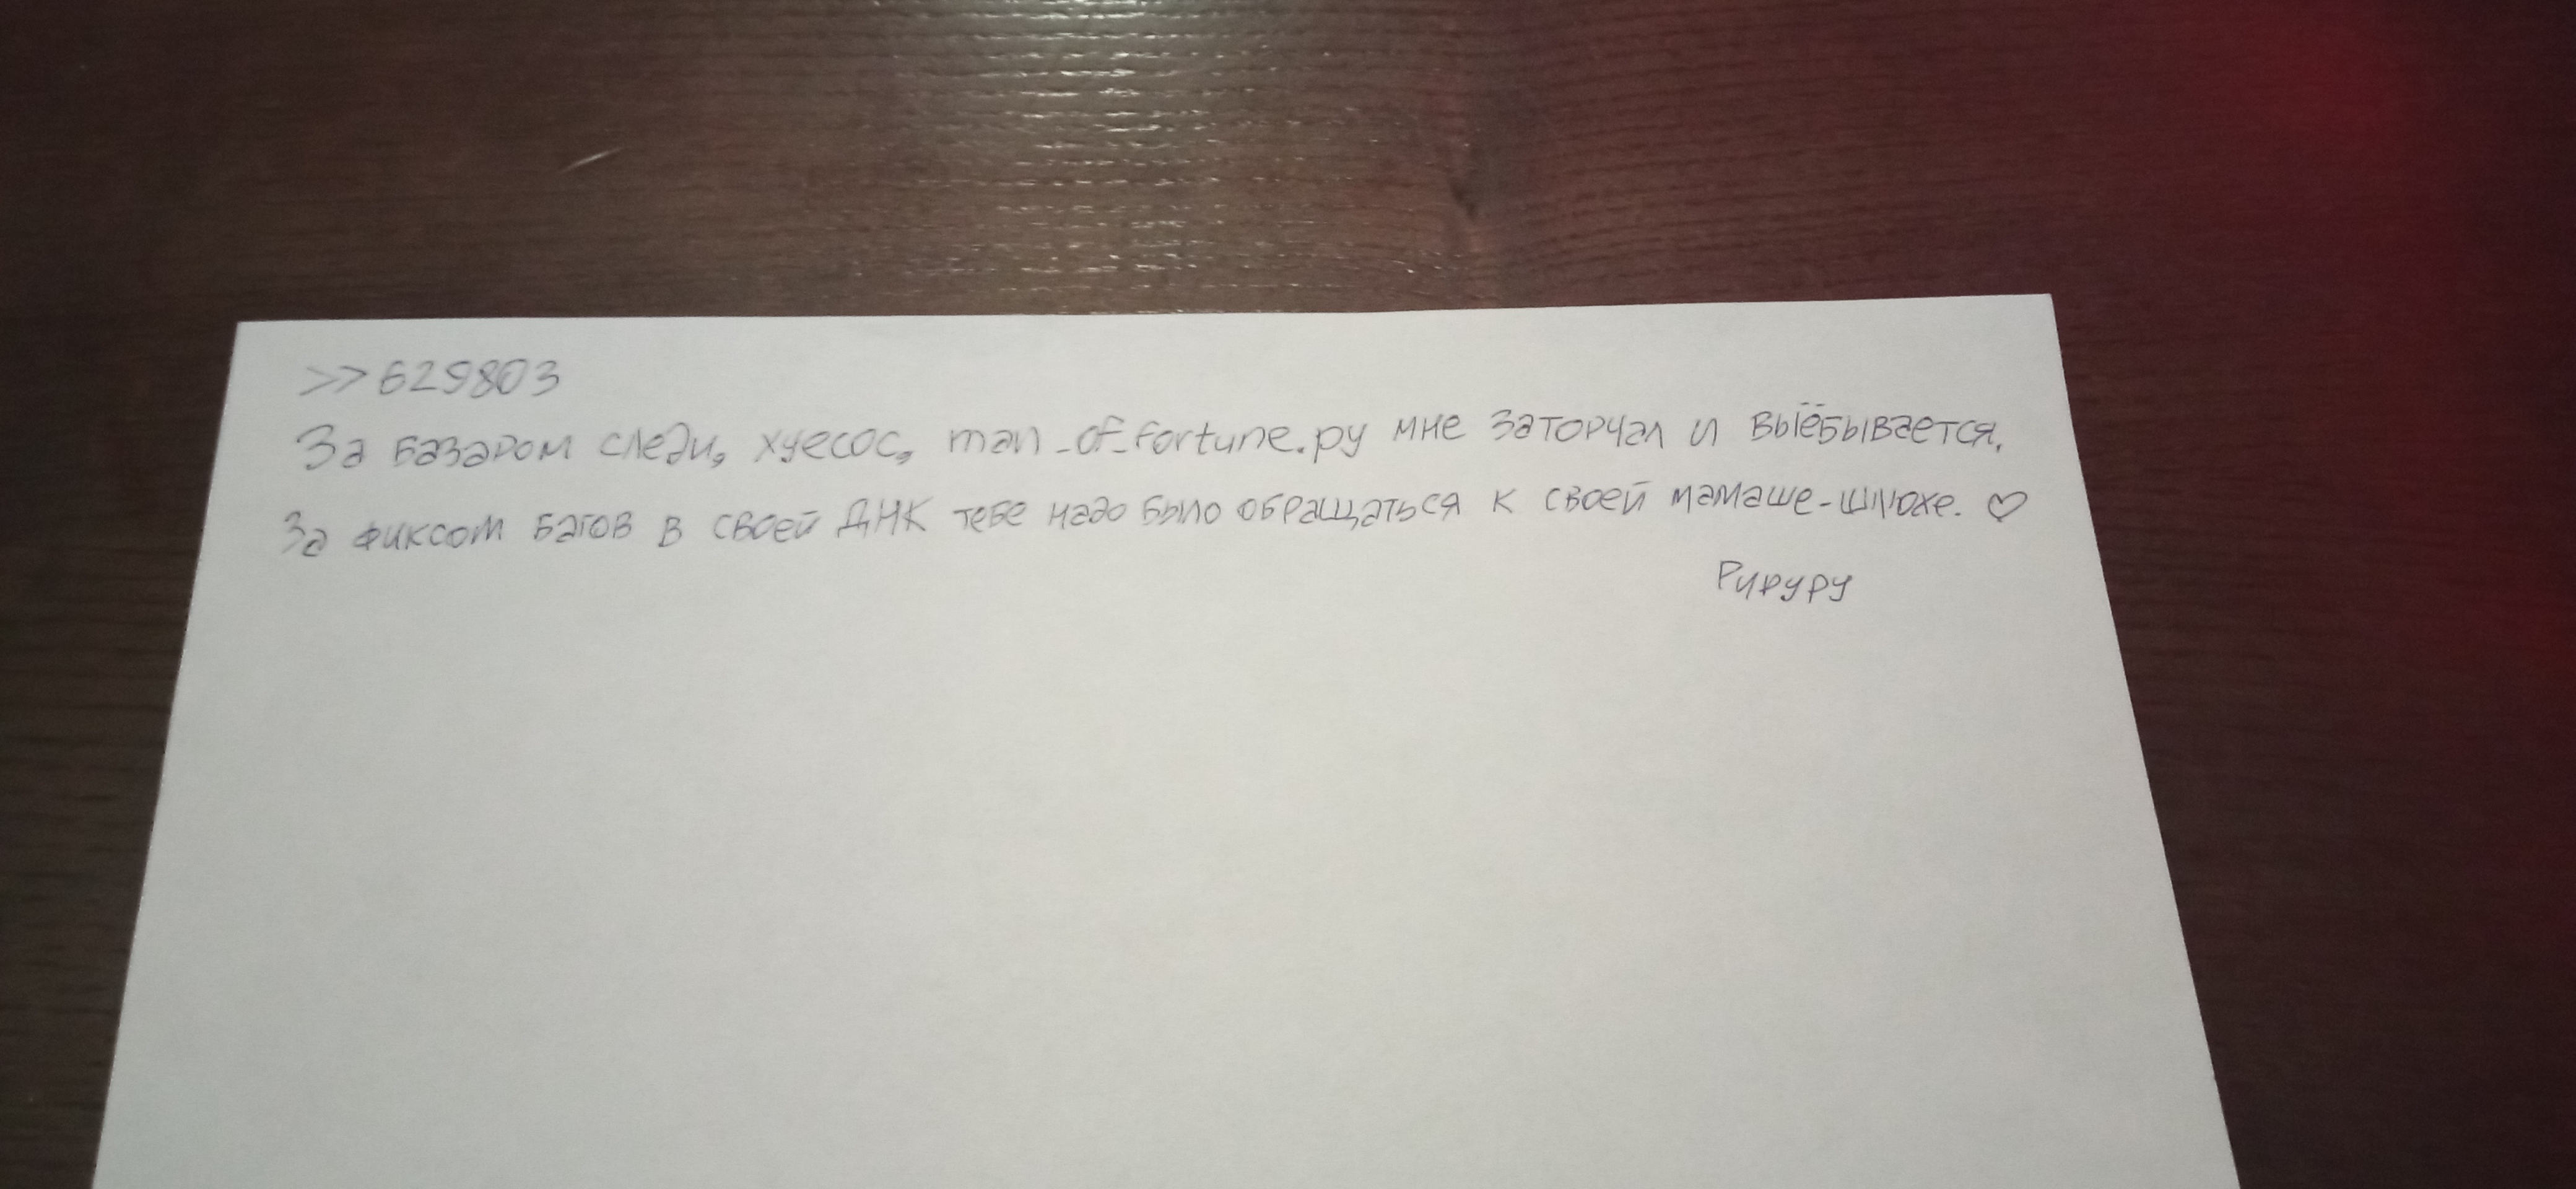 >>629803
За базаром следи, хуесос, man_of_fortune.ру мне заторчал и выёбывается.
За фиксом багов в своей ДНК тебе надо было обращаться к своей мамаше-шлюхе. ♡
Рируру